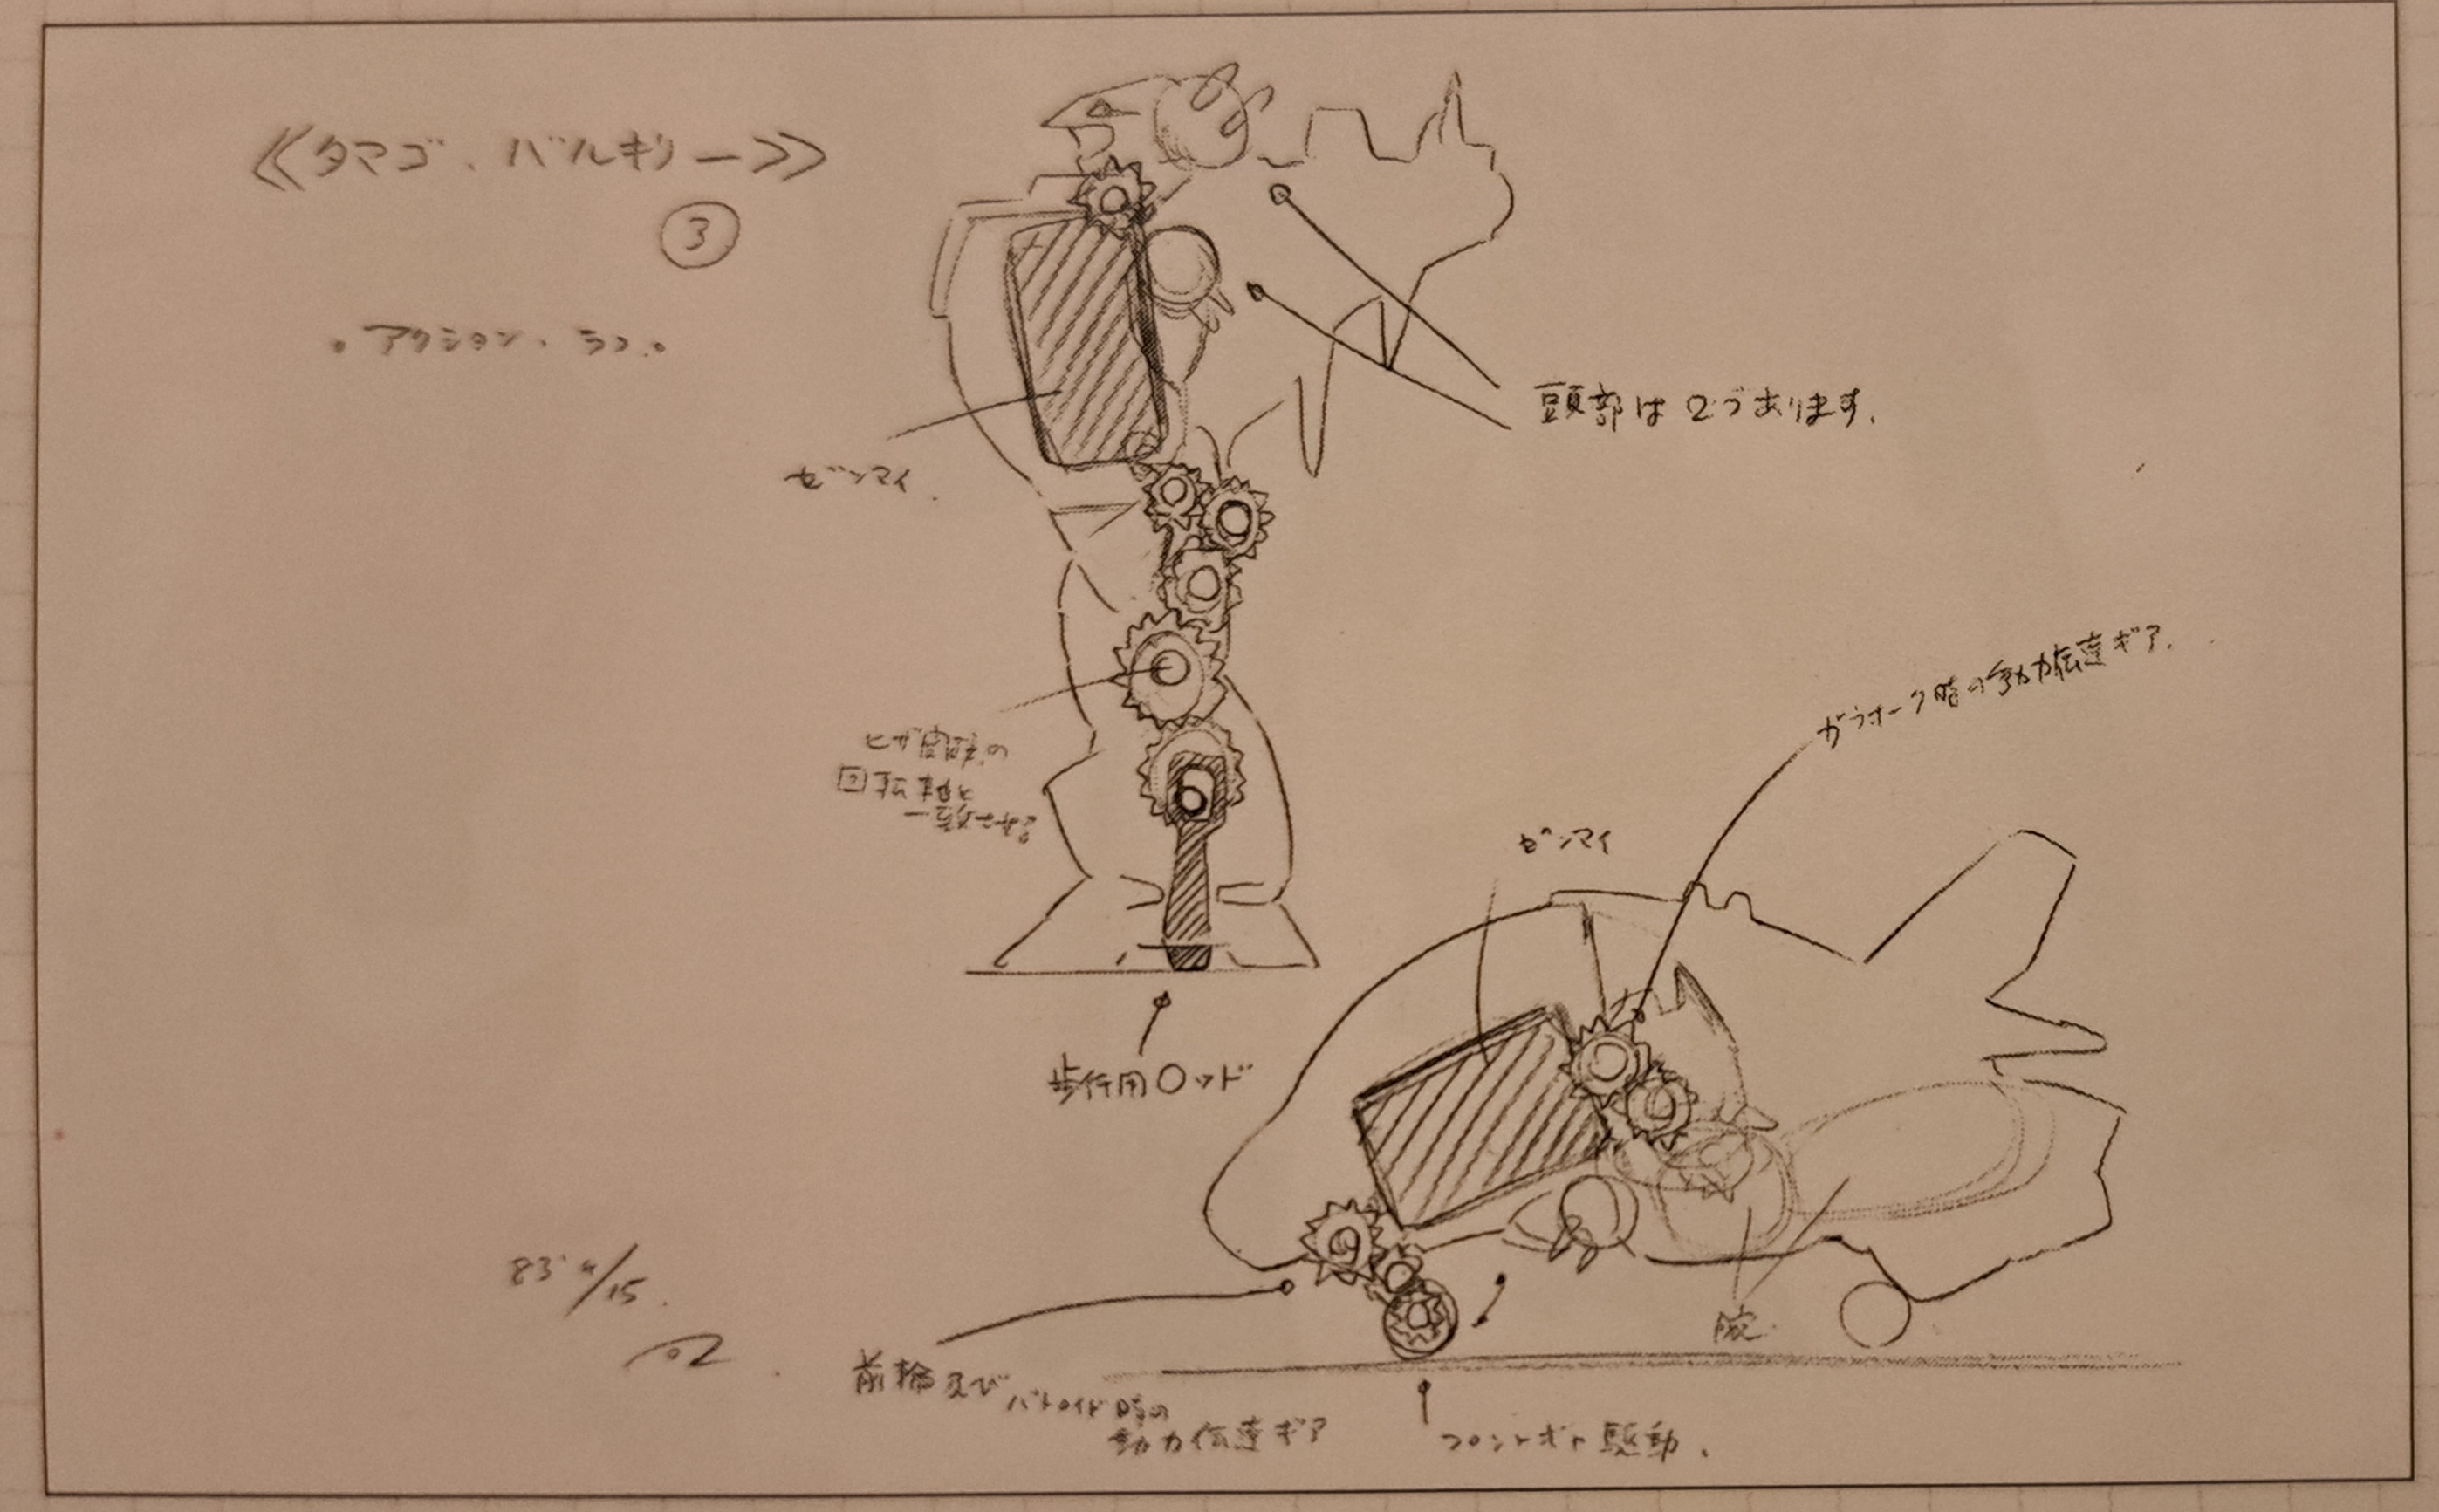 ≪タマゴ.バルキリー≫
③
。アクション.ラフ。
頭部は2づあります.
ゼンマイ.
ヒザ関節の
回転軸と
一致させる
ガウォーク時の動力伝達ギア.
ゼンマイ
歩行用ロッド
腕
83'
/15.
前輪及び
バトロイド時の
動力伝達ギア
駆動.